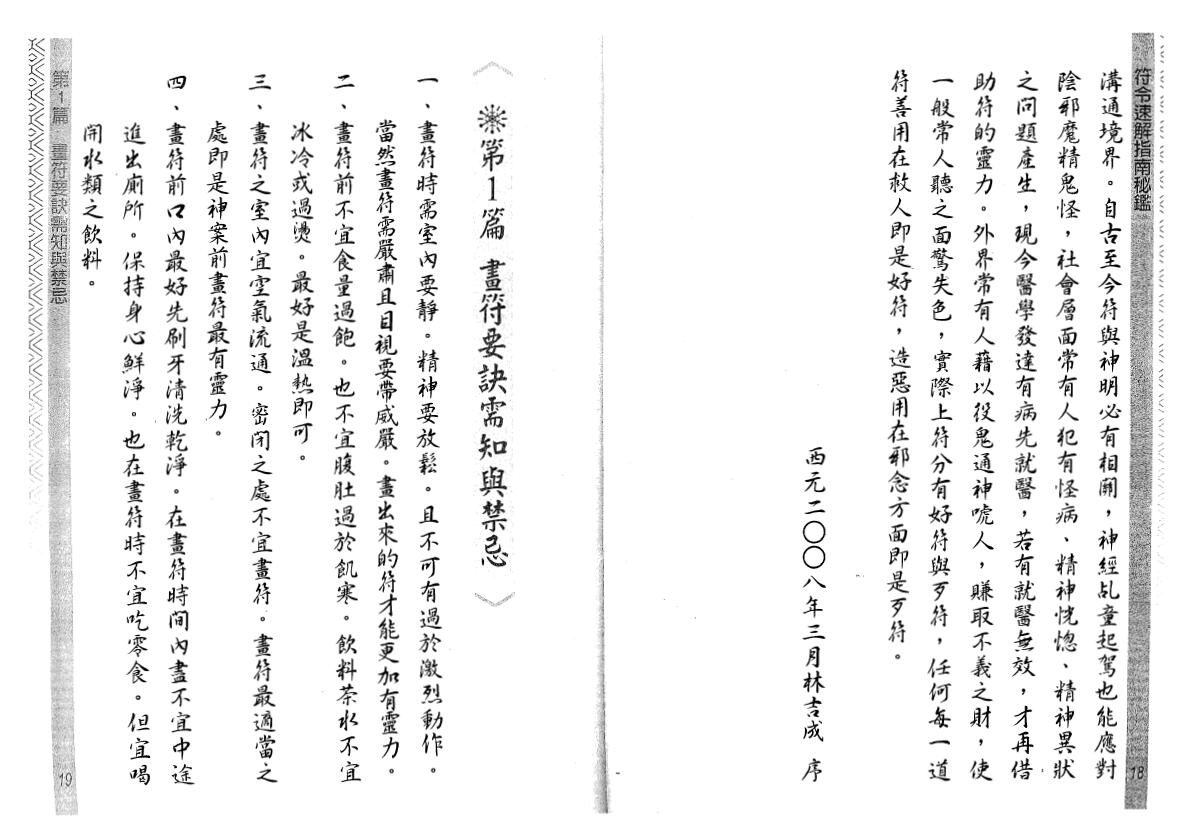 符令速解指南秘鑑
溝通境界。自古至今符與神明必有相關，神經乩童起駕也能應對
陰邪魔精鬼怪，社會層面常有人犯有怪病、精神恍惚、精神異狀
之問題產生，現今醫學發達有病先就醫，若有就醫無效，才再借
助符的靈力。外界常有人藉以役鬼通神唬人，賺取不義之財，使
一般常人聽之面驚失色，實際上符分有好符與歹符，任何每一道
符善用在救人即是好符，造惡用在邪念方面即是歹符。
西元二〇〇八年三月林吉成 序
18
第1篇 畫符要訣需知與禁忌
一、畫符時需室內要靜。精神要放鬆。且不可有過於激烈動作。
當然畫符需嚴肅且目視要帶威嚴。畫出來的符才能更加有靈力。
二、畫符前不宜食量過飽。也不宜腹肚過於飢寒。飲料茶水不宜
冰冷或過燙。最好是溫熱即可。
三、畫符之室內宜空氣流通。密閉之處不宜畫符。畫符最適當之
處即是神案前畫符最有靈力。
四、畫符前口內最好先刷牙清洗乾淨。在畫符時間內盡不宜中途
進出廁所。保持身心鮮淨。也在畫符時不宜吃零食。但宜喝
開水類之飲料。
第1篇 畫符要訣需知與禁忌
19